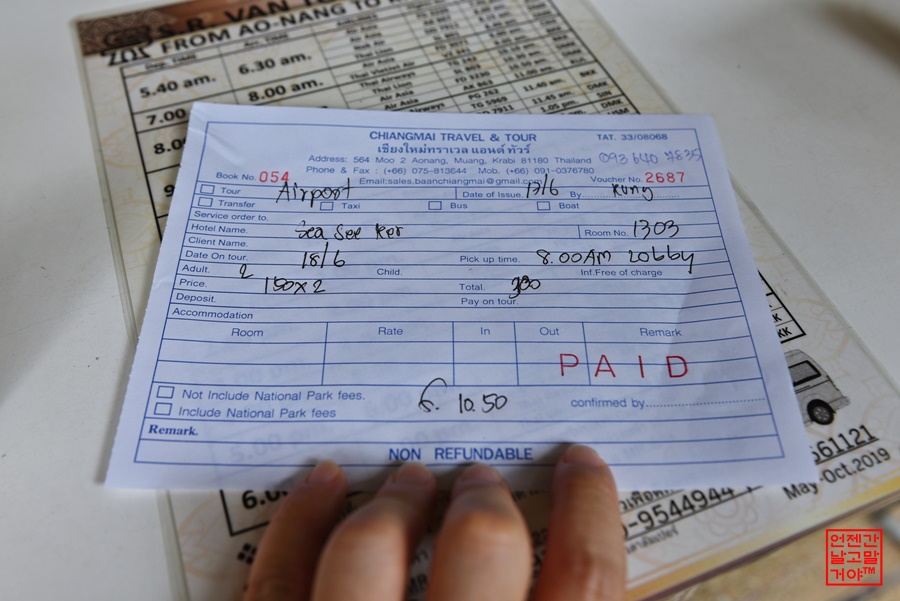 S.R. VAN
FROM AO-NANG TO
5.40 am. 6.30 am.
7.00 8.00 am.
Air Asia
Thai Vietjet Air
Thai Airways
Thai Lion
Air Asia
PG 262
TG 5969
11.45 am.
1.05 pm.
BKK
DMK
CHIANGMAI TRAVEL & TOUR TAT. 33/08068
เชียงใหม่ทราเวล แอนด์ ทัวร์
Address: 564 Moo 2 Aonang, Muang, Krabi 81180 Thailand 093 640 7835
Phone & Fax : (+66) 075-813644 Mob. (+66) 091-0376780
Book No. 054 Email:sales.baanchiangmai@gmail.com Voucher No. 2687
Tour Airport Date of Issue. 17/6 By Kung
Transfer Taxi Bus Boat
Service order to.
Hotel Name. Sea See Ker Room No. 1303
Client Name.
Date On tour. 18/6 Pick up time. 8.00AM Lobby
Adult. 2 Child. Inf.Free of charge
Price. 150x2 Total. 300
Deposit. Pay on tour.
Accommodation
Room Rate In Out Remark
PAID
Not Include National Park fees.
Include National Park fees
10.50 confirmed by
Remark.
NON REFUNDABLE
661121
-9544944
May-Oct.2019
언젠간
날고말
거야™